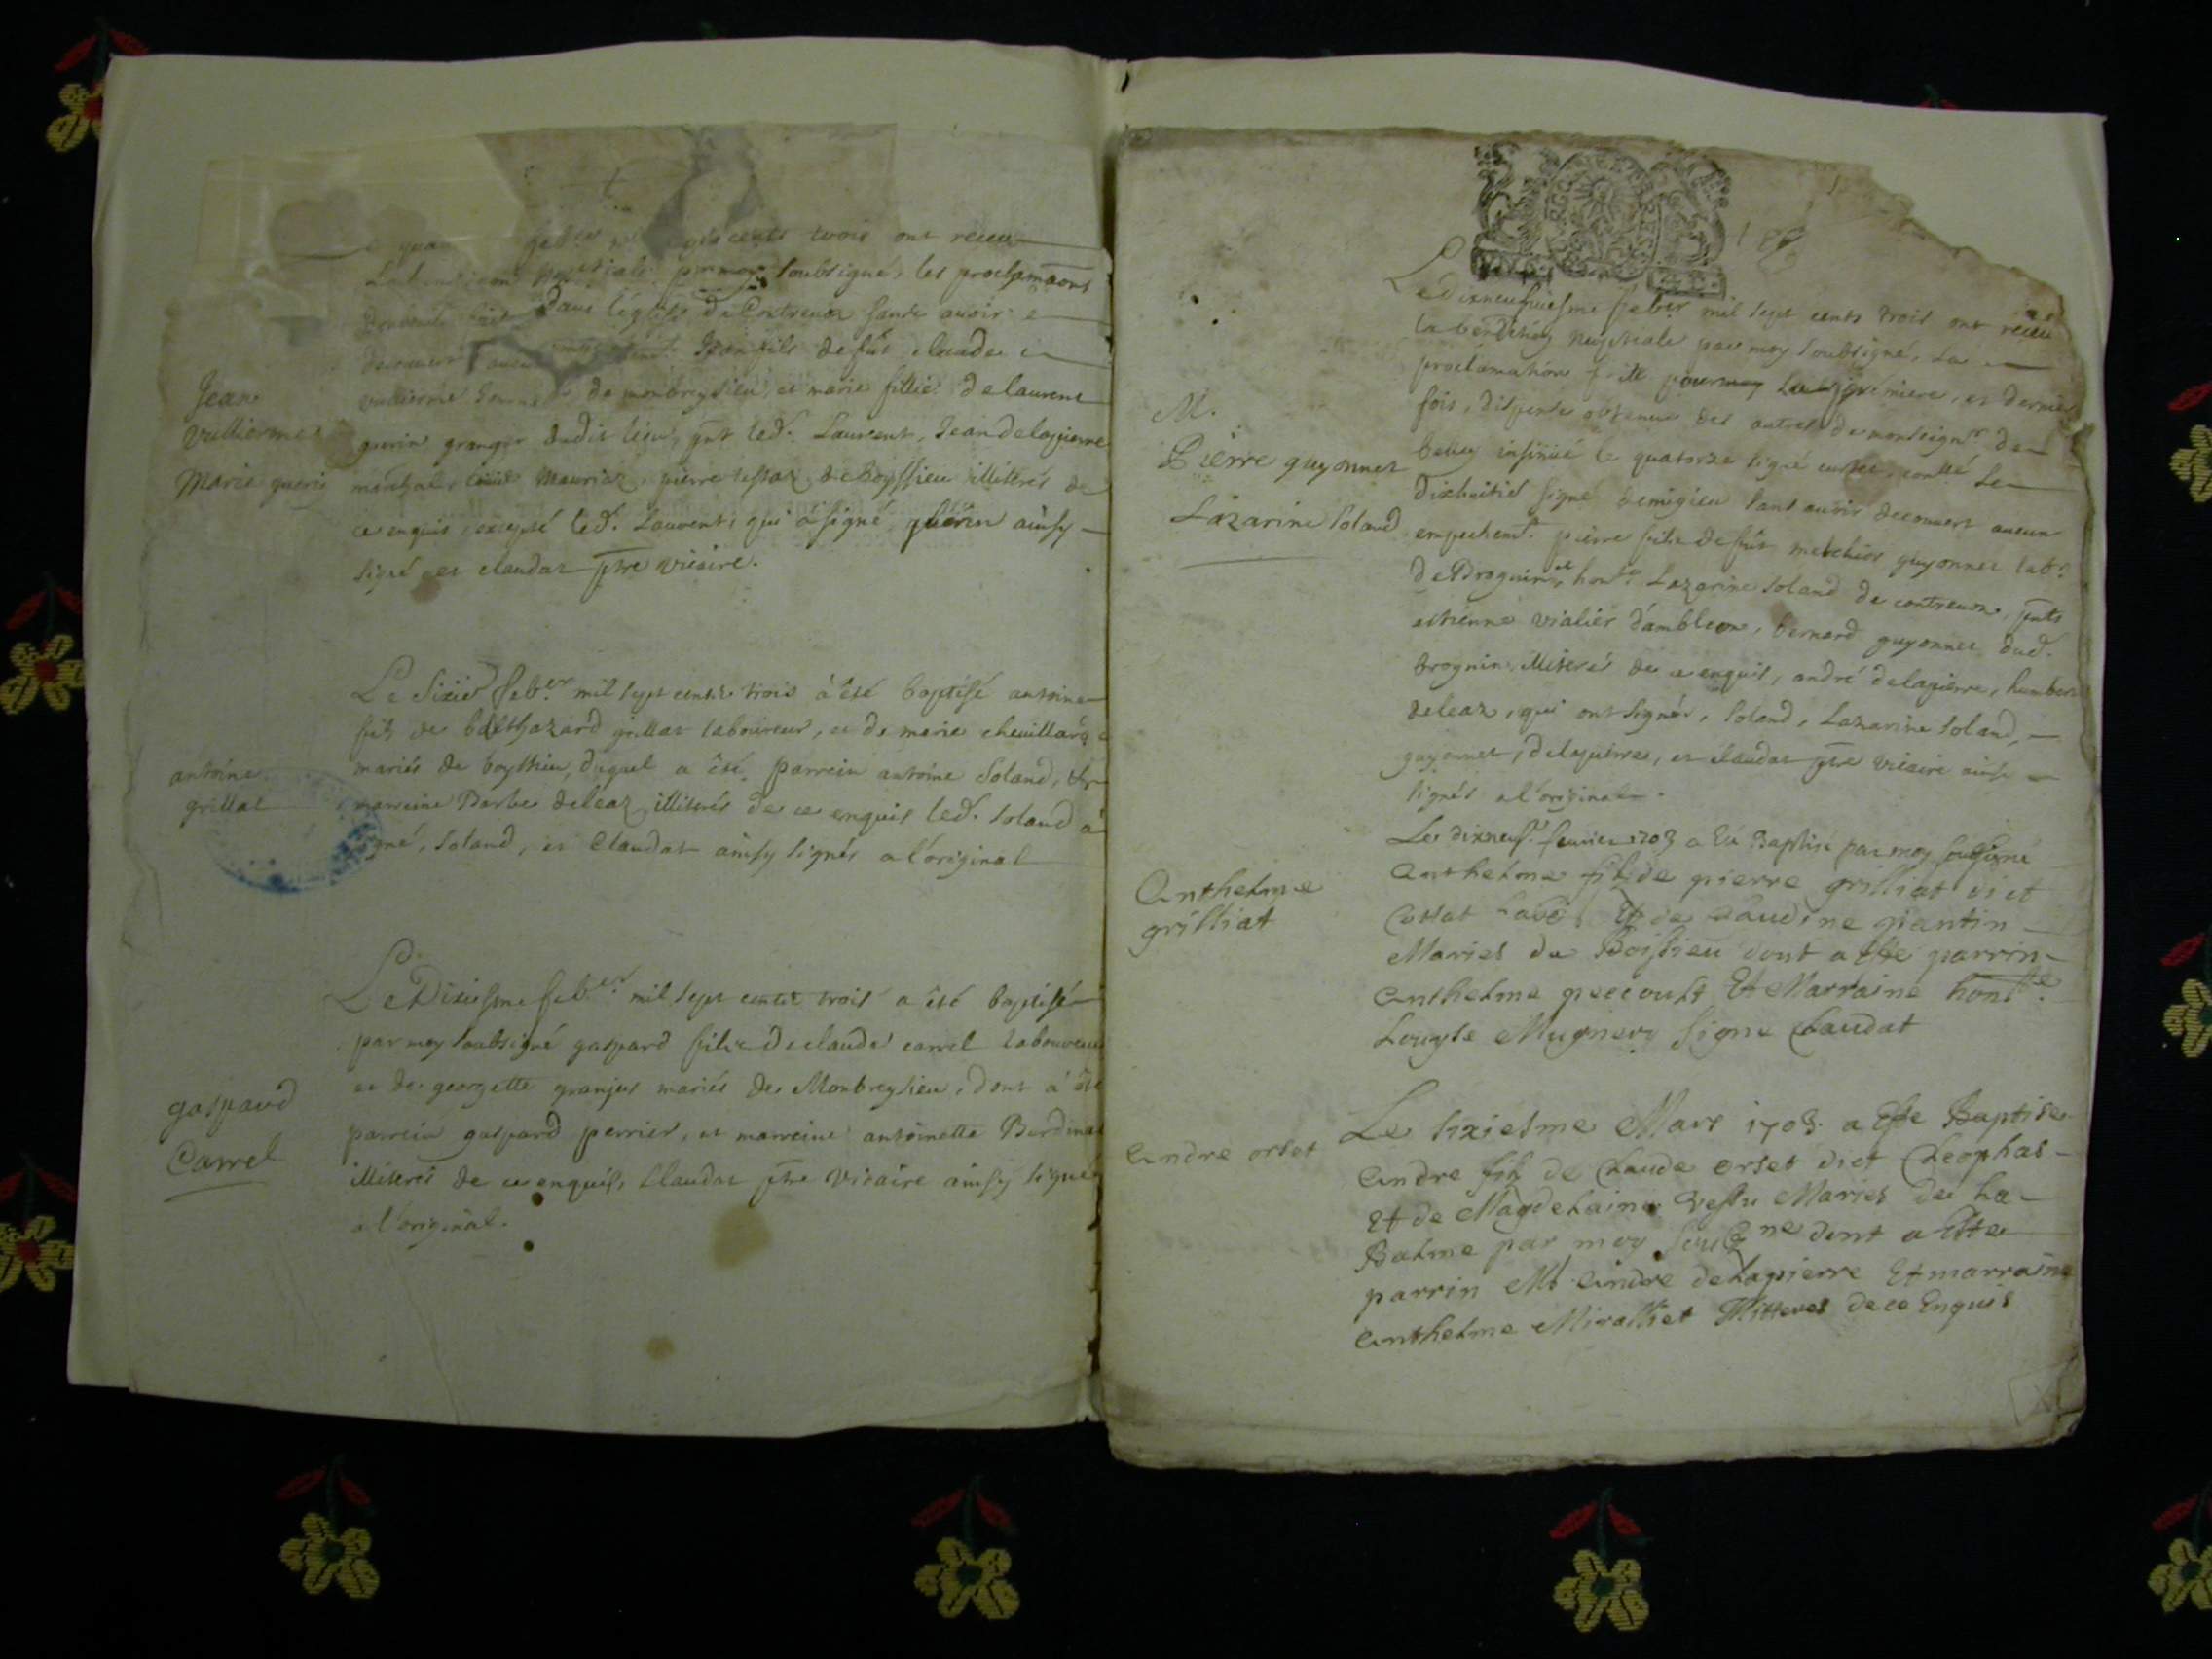 cents trois ont receu
par moy soubsigné, les proclamaōns
dans l'église de Contrevoz sans avoir
Jean fils de fût claude
de monbreysieu, et marie fillie de laurent
guerin granger dudit lieu, pnt led. Laurent, Jean delapierre
mauriaz, pierre de Boyssieu illiterés de
ce enquis, excepté led. Laurent, qui a signé guerin ainsy
signé et claudat ptre vicaire.
Jean
Vullierme
Marie guerin
Le sixie febver mil sept cents trois à été baptisé antoine
fils de balthazard grillat laboureur, et de marie chevillard
mariés de boyssieu, duquel a été parrein antoine Soland, et
marreine Barbe deleaz illiterés de ce enquis led. Soland à
gné, Soland, et Claudat ainsy signés a l'original
antoine
grillat
Le Dixiesme feb.er mil sept cents trois a été baptisé
par moy soubsigné gaspard fils de claude carrel laboureur
et de georgette granjus mariés de Monbreysieu, dont à été
parrein gaspard perrier, et marreine antoinette
illiterés de ce enquis, Claudat ptre Vicaire ainsy signé
a l'original.
gaspard
Carrel
Le dixneufviesme febver mil sept cents trois ont receu
la benediction nuptiale par moy soubsigné, la
proclamation faitte pour premiere, et derniere
fois, dispense obtenue des autres de monseignr de
belley insinué le quatorze signé, conllé le
dixhuitie signé demigieu sans avoir decouvert aucun
empechemt. pierre fils de fût melchior guyonnet labr
de Brognin, et honte Lazarine Soland de contrevoz, pnts
estienne vialier d'ambleon, bernard guyonnet dud.
brognin illiterés de ce enquis, andré delapierre, humbert
deleaz, qui ont signés, Soland, Lazarine Soland,
guyonnet, delapierre, et claudat ptre vicaire ainsi
signés a l'original.
M.
Pierre guyonnet
Lazarine Soland
Le dixneuf. fevrier 1703 a été Baptisé par moy soussigné
Anthelme fils de pierre grilliat dict
Cottat Et de Claudine piantin
Mariés de Boissieu dont a esté parrin
Anthelme peccoult Et Marraine honste
Louyse Mugnery signe Claudat
Anthelme
grilliat
Le sixiesme Mars 1703 a Este Baptise
Andre fils de Claude orset dict Cleophas
Et de Magdelaine Maries de La
Balme par moy dont a Este
parrin Mr Andre delapierre Et marraine
Anthelme Miralliet Illitteres de ce Enquis
Andre orset